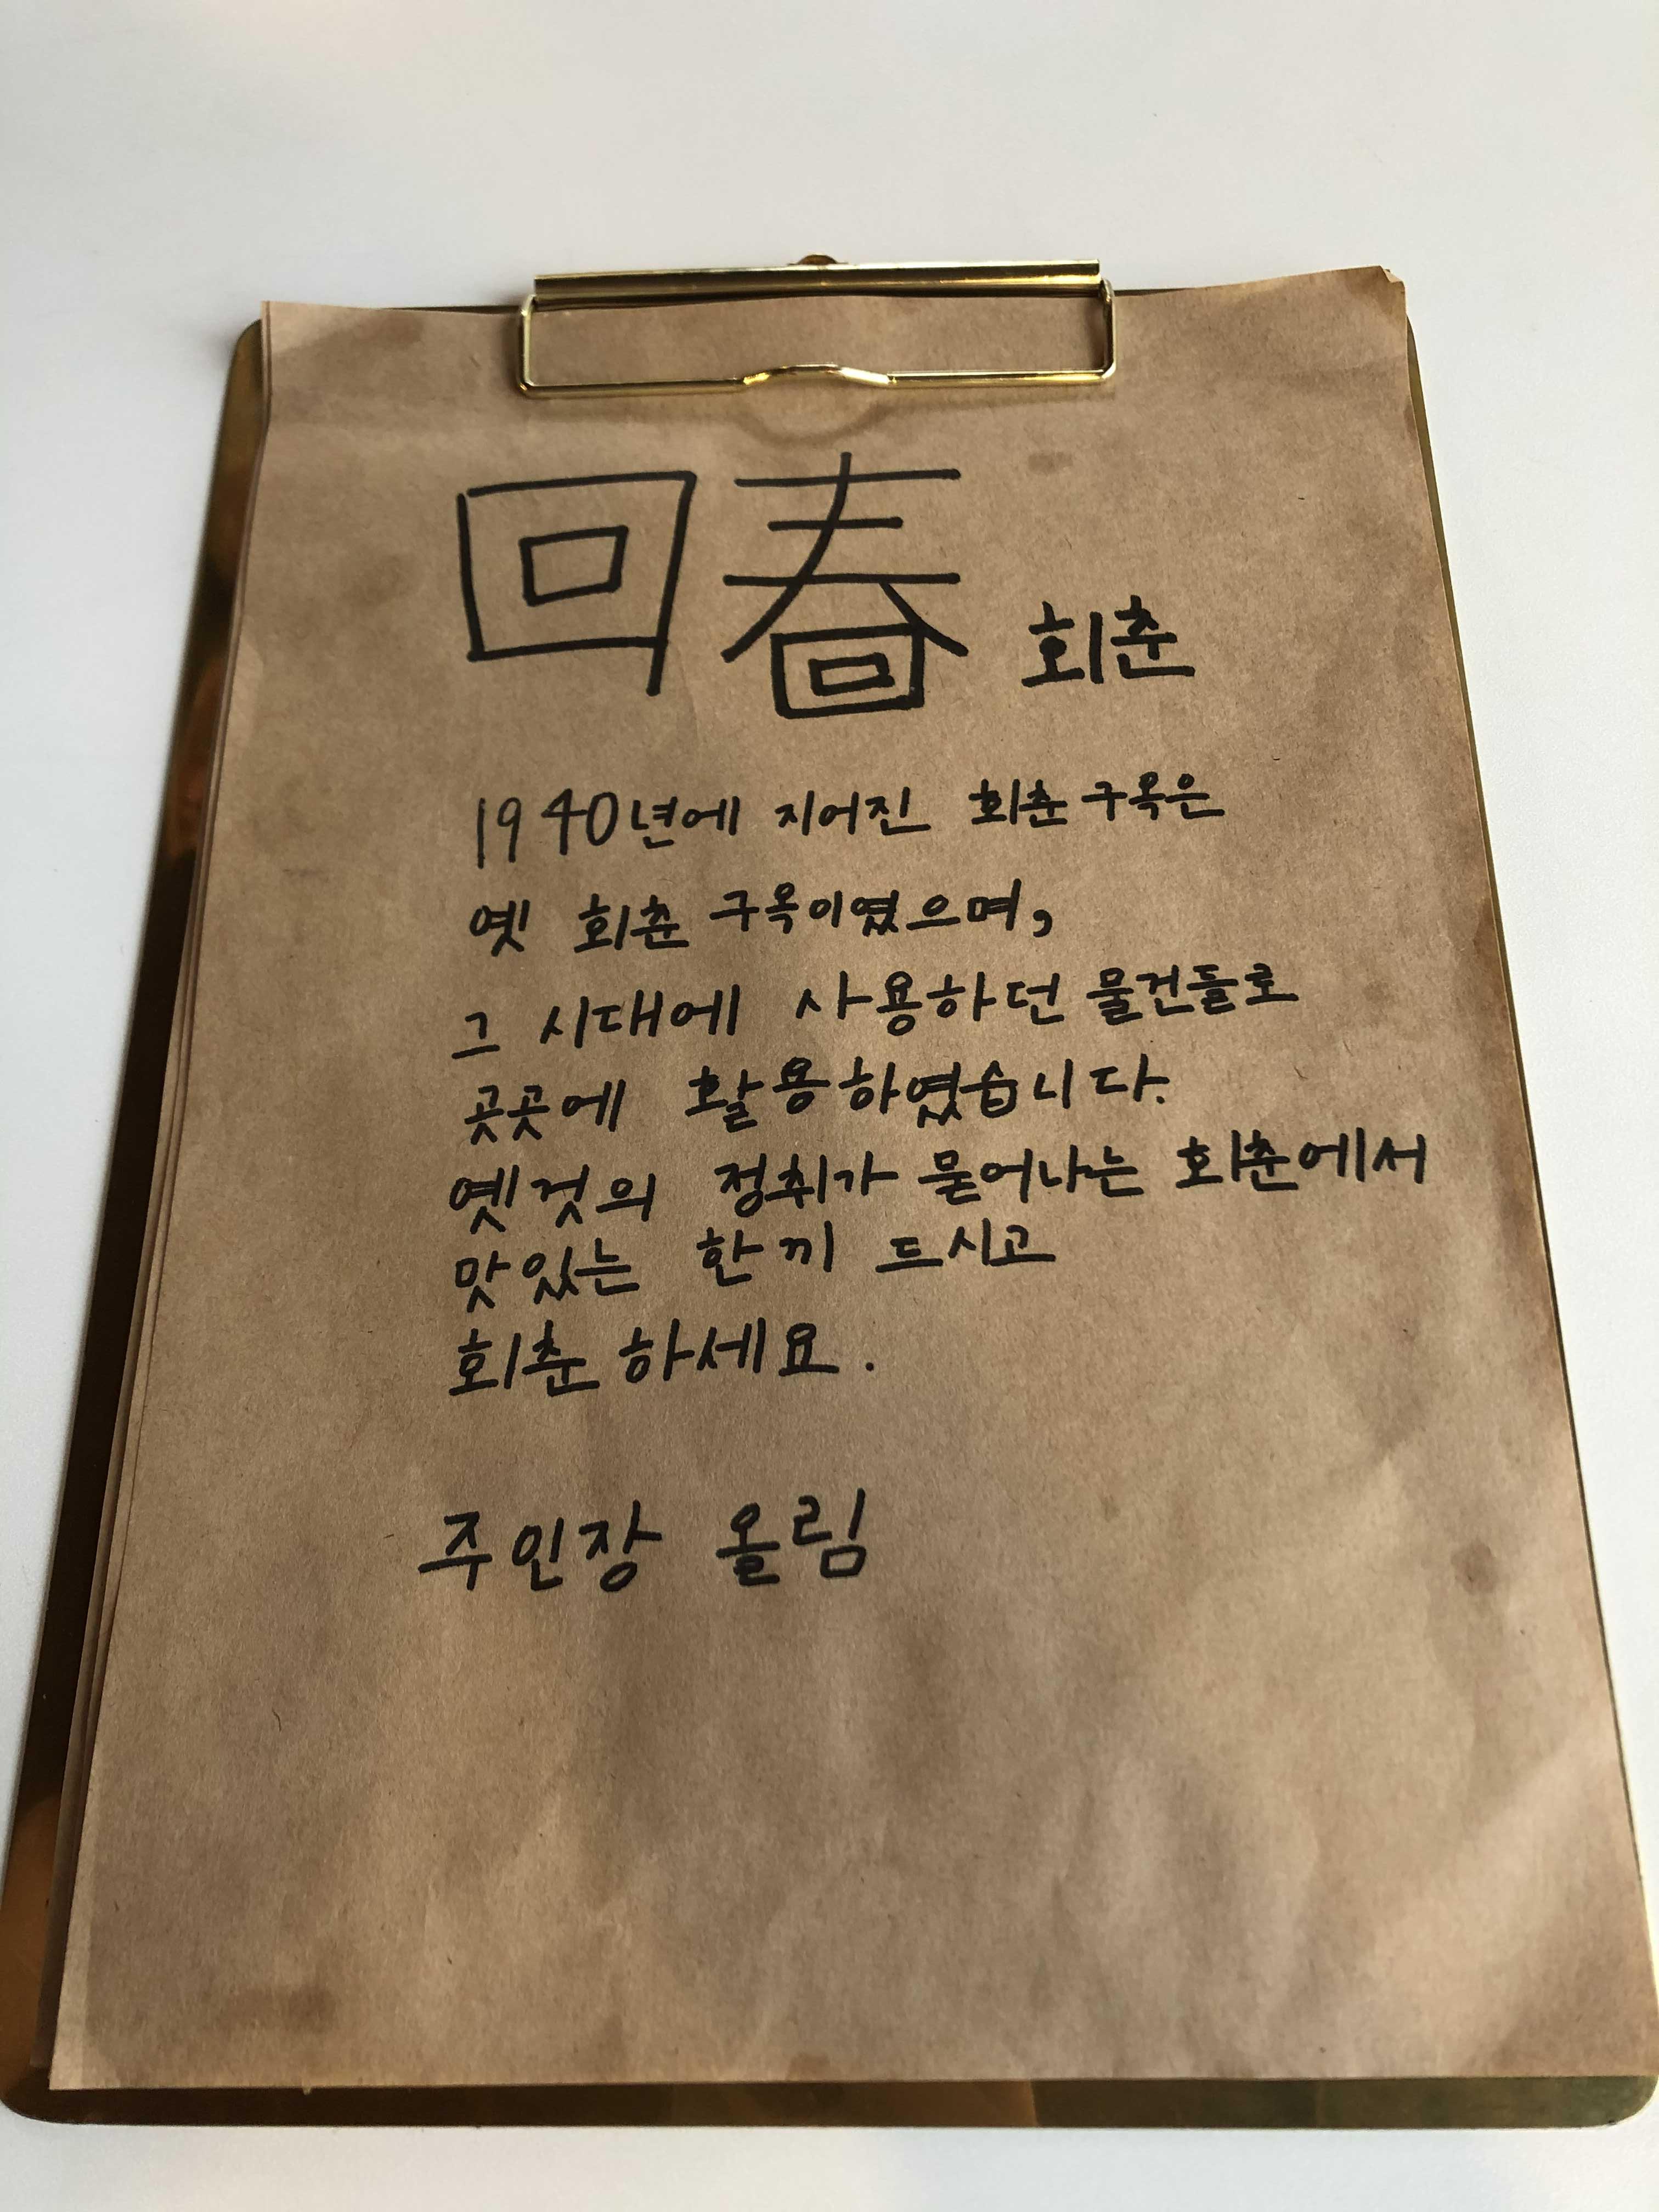 回春 회춘
1940년에 지어진 회춘 구옥은
옛 회춘 구옥이였으며,
그 시대에 사용하던 물건들로
곳곳에 활용하였습니다.
옛것의 정취가 묻어나는 회춘에서
맛있는 한끼 드시고
회춘 하세요.
주인장 올림